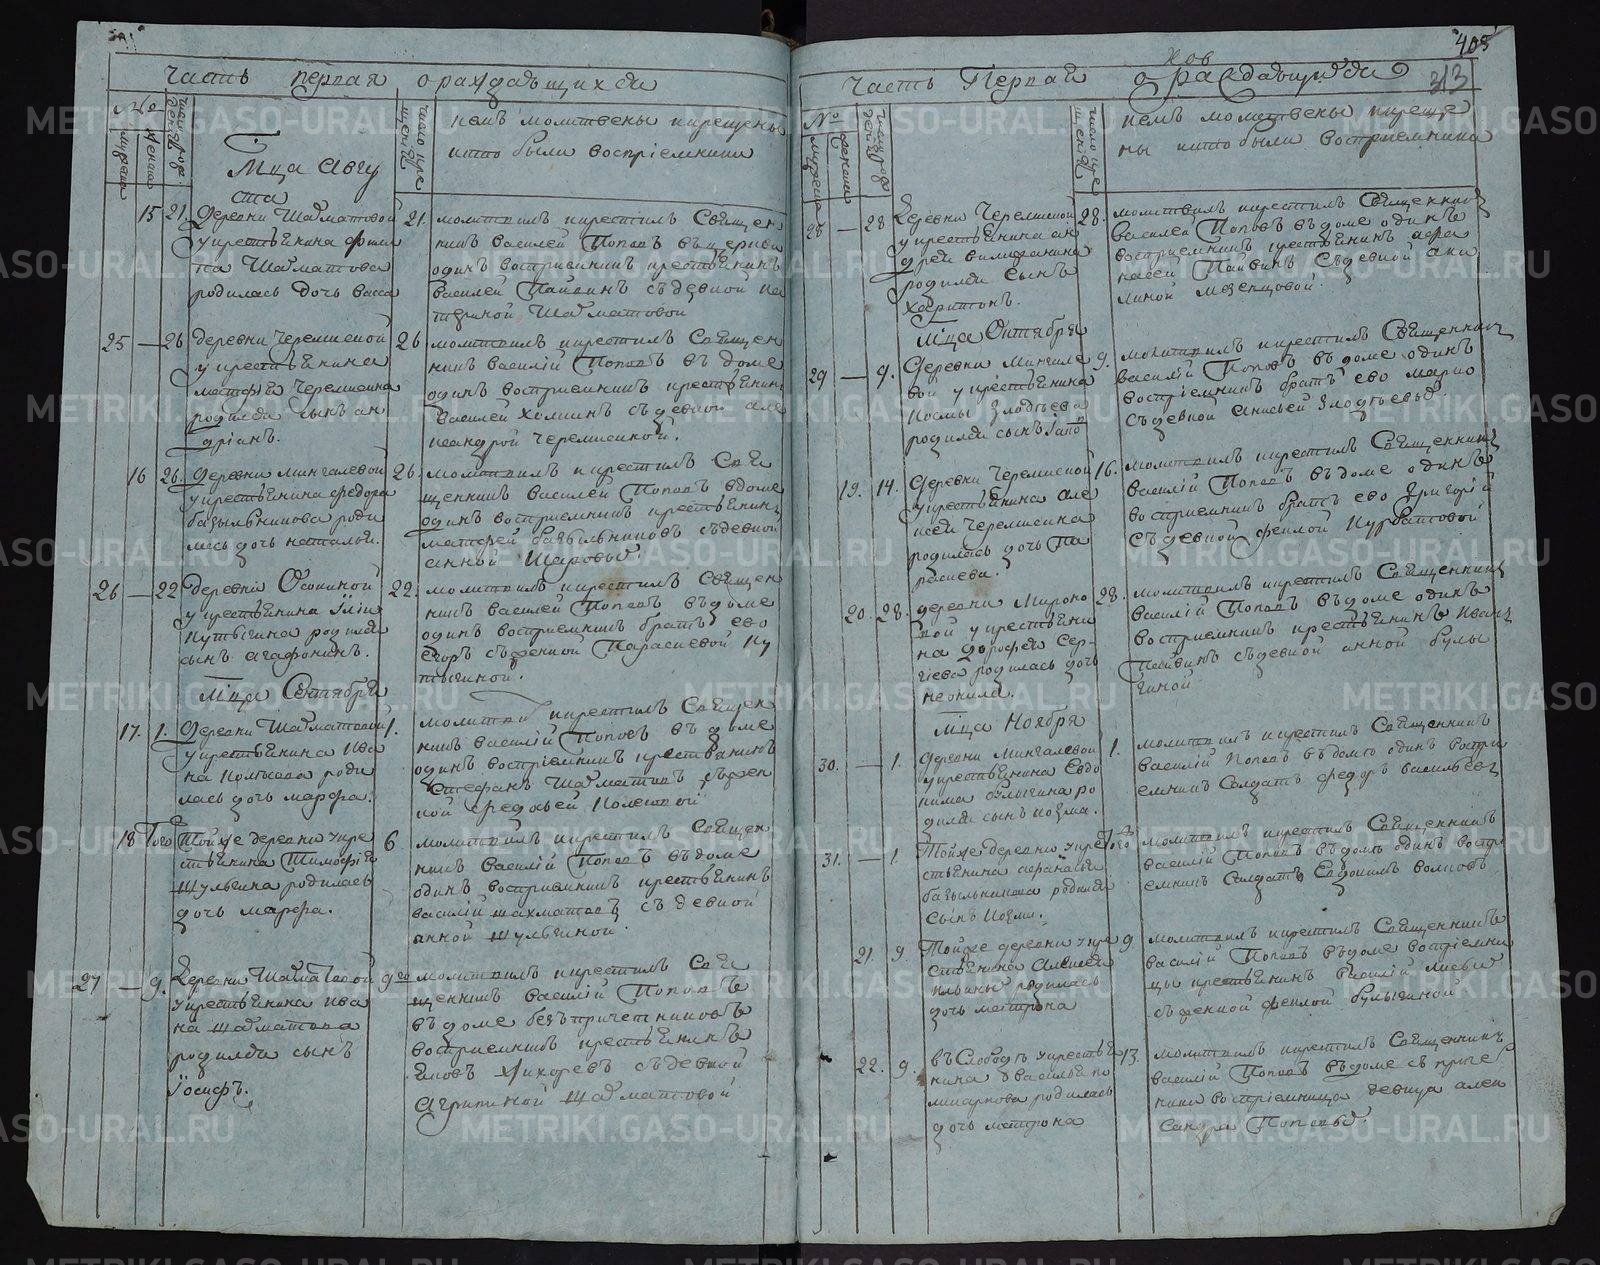 часть первая о раждающихся
№
Мужска
Женска
число рожденiя
число крещенiя
кемъ молитвены и крещены
и кто были воспрiемники
Мца Авгу
ста
15 21. Деревни Шахматовой
у крестьянина
на Шахматова
родилась дочь васса
21. молитвилъ и крестилъ Священ
никъ василей Поповъ въ церкви
одинъ воспрiемникъ крестьянинъ
василей Пайвинъ съ девкой ка
териной Шахматовой
25 — 26 деревни Черемисской
у крестьянина
матфея Черемисина
родился сынъ ан
дрiанъ.
26 молитвилъ и крестилъ Священ
никъ василiй Поповъ въ доме
одинъ воспрiемникъ крестьянинъ
василей съ девкой але
ксандрой черемисиной.
16 26. Деревни мингалевой
у крестьянина федора
базыльникова роди
лась дочь наталья.
26. молитвилъ и крестилъ Свя
щенникъ василей Поповъ в доме
одинъ воспрiемникъ крестьянинъ
матфей базыльниковъ съ девкой
анной Шаровой.
26 — 22 деревни Осиновой
у крестьянина
Кутыгина родился
сынъ агафоникъ.
22. молитвилъ и крестилъ Священ
никъ василей Поповъ въ доме
одинъ воспрiемникъ братъ ево
Егоръ съ женкой Парасковей Ку
тыгиной.
Мца Сентября
17. 1. Деревни Шахматовой
у крестьянина Ива
на роди
лась дочь марфа.
1. молитвилъ и крестилъ Священ
никъ василiй Поповъ въ доме
одинъ воспрiемникъ крестьянинъ
Стефанъ Шахматовъ съ жен
кой
18 Того Тойже деревни у кре
стьянина Тимофея
Шульгина родилась
дочь марфа.
6 молитвилъ и крестилъ Священ
никъ василiй Поповъ въ доме
одинъ воспрiемникъ крестьянинъ
василiй шахматовъ съ девкой
анной шульгиной.
27 — 9. Деревни Шахматовой
у крестьянина ива
на шахматова
родился сынъ
Iосифъ.
9го молитвилъ и крестилъ Свя
щенникъ василiй Поповъ
въ доме безъ причетниковъ
воспрiемникъ крестьянинъ
Яковъ Лихоревъ съ девкой
Агрипиной Шахматовой
405
313
часть Первая о раждающихся
№
Мужска
Женска
число рожденiя
число крещенiя
кемъ молитвены и креще
ны и кто были воспрiемники
28 — 28 Деревни Черемисской
у крестьянина ан
дрея
родился сынъ
Харитонъ.
28. молитвилъ и крестилъ Священникъ
василей Поповъ въ доме одинъ
воспрiемникъ крестьянинъ афа
насей Пайвинъ съ девкой аку
линой мезенцовой.
Мца Октября
29 — 9. Деревни Мингале
вой у крестьянина
Козмы Злодеева
родился сынъ
9. молитвилъ и крестилъ Священникъ
василiй Поповъ въ доме одинъ
воспрiемникъ братъ ево
съ девкой анисьей Злодеевой.
19. 14. Деревни Черемисской
у крестьянина але
ксея Черемисина
родилась дочь Па
расковья.
16. молитвилъ и крестилъ Священникъ
василiй Поповъ въ доме одинъ
воспрiемникъ братъ ево Григорiй
съ девкой феклой Курбатовой
20. 28. деревни Мироно
вой у крестьяни
на дорофея Сер
гiева родилась дочь
неонила.
28. молитвилъ и крестилъ Священникъ
василiй Поповъ въ доме одинъ
воспрiемникъ крестьянинъ Иванъ
Пайвинъ съ девкой анной булы
гиной
Мца Ноября
30. — 1. Деревни Мингалевой
у крестьянина Евдо
кима булыгина ро
дился сынъ козма.
1. молитвилъ и крестилъ Священникъ
василiй Поповъ въ доме одинъ воспрi
емникъ Солдатъ федоръ васильевъ
31. — 1 Тойже деревни у кре
стьянина афанасья
базыльникова родился
сынъ Козма.
Того молитвилъ и крестилъ Священникъ
василiй Поповъ въ доме одинъ воспрi
емникъ Солдатъ Евдокимъ волковъ
21. 9 Тойже деревни у кре
стьянина Алексея
Ильиныхъ родилась
дочь матрона
9. молитвилъ и крестилъ Священникъ
василiй Поповъ въ доме воспрiемни
цы крестьянинъ василiй
съ женкой феклой булыгиной
22. 9. въ Слободе у крестья
нина василья по
номарiова родилась
дочь матрона
13. молитвилъ и крестилъ Священникъ
василiй Поповъ въ доме съ приче
тники воспрiемница девица алек
сандра Попова.
METRIKI.GASO-URAL.RU